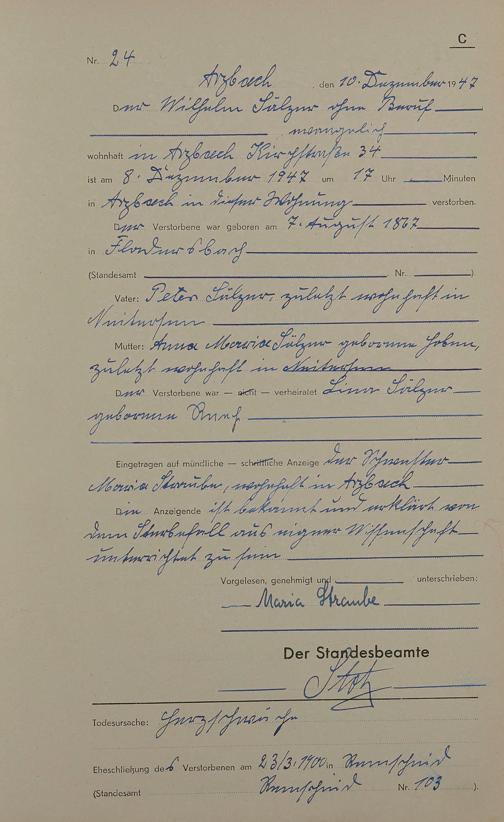 C
Nr. 24
Arzbach, den 10. Dezember 1947
Der Wilhelm Sälzer ohne Beruf
evangelisch
wohnhaft in Arzbach Kirchstraße 34
ist am 8. Dezember 1947 um 17 Uhr Minuten
in Arzbach in dieser Wohnung verstorben.
Der Verstorbene war geboren am 7. August 1867
in Fladersbach
(Standesamt Nr. )
Vater: Peter Sälzer, zuletzt wohnhaft in
Neitersen
Mutter: Anna Maria Sälzer geborene
zuletzt wohnhaft in Neitersen
Der Verstorbene war — nicht — verheiratet Lina Sälzer
geborene
Eingetragen auf mündliche — schriftliche Anzeige der Schwester
Maria Straube, wohnhaft in Arzbach
Die Anzeigende ist bekannt und erklärt von
dem Sterbefall aus eigner Wissenschaft
unterrichtet zu sein
Vorgelesen, genehmigt und unterschrieben:
Maria Straube
Der Standesbeamte
Todesursache: Herzschwäche
Eheschließung des Verstorbenen am 23/3.1900 in Remscheid
(Standesamt Remscheid Nr. 103 ).